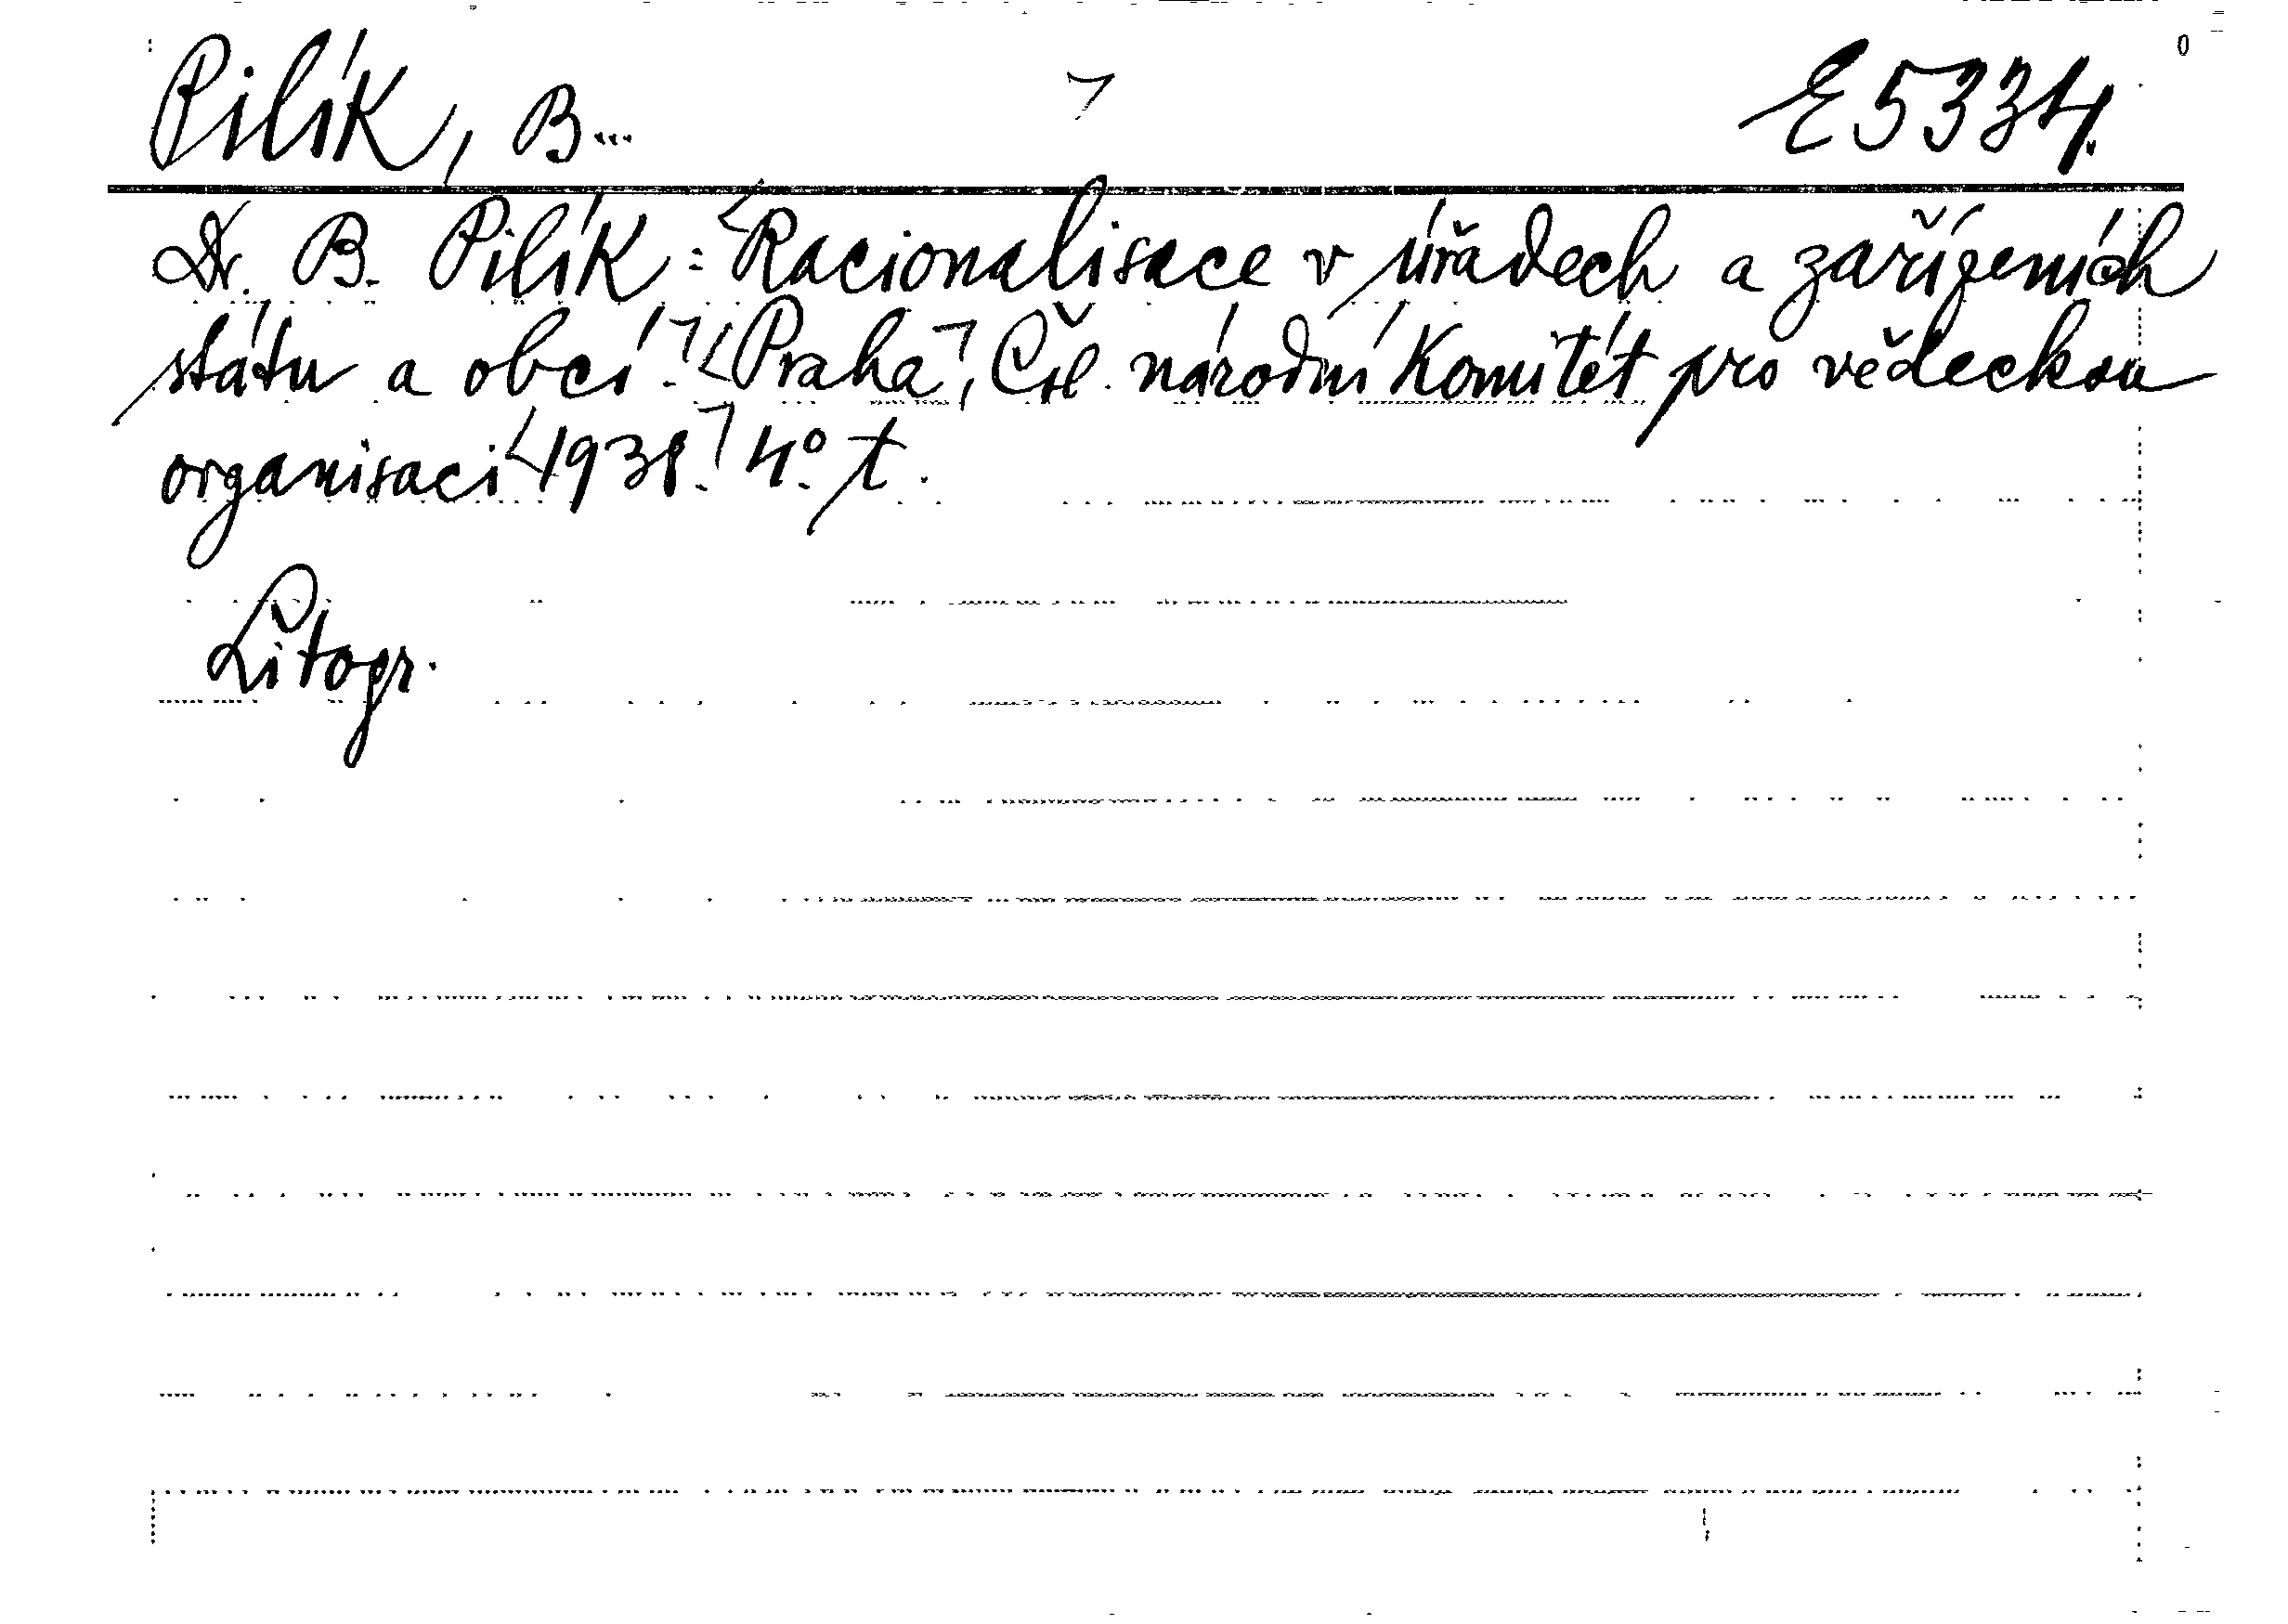 Pilík, B... E 5334.
Dr. B. Pilík: Racionalisace v úřadech a zařízeních
státu a obcí. Praha, Čsl. národní Komitét pro vědeckou
organisaci 1938. 4°. t.
Litogr.